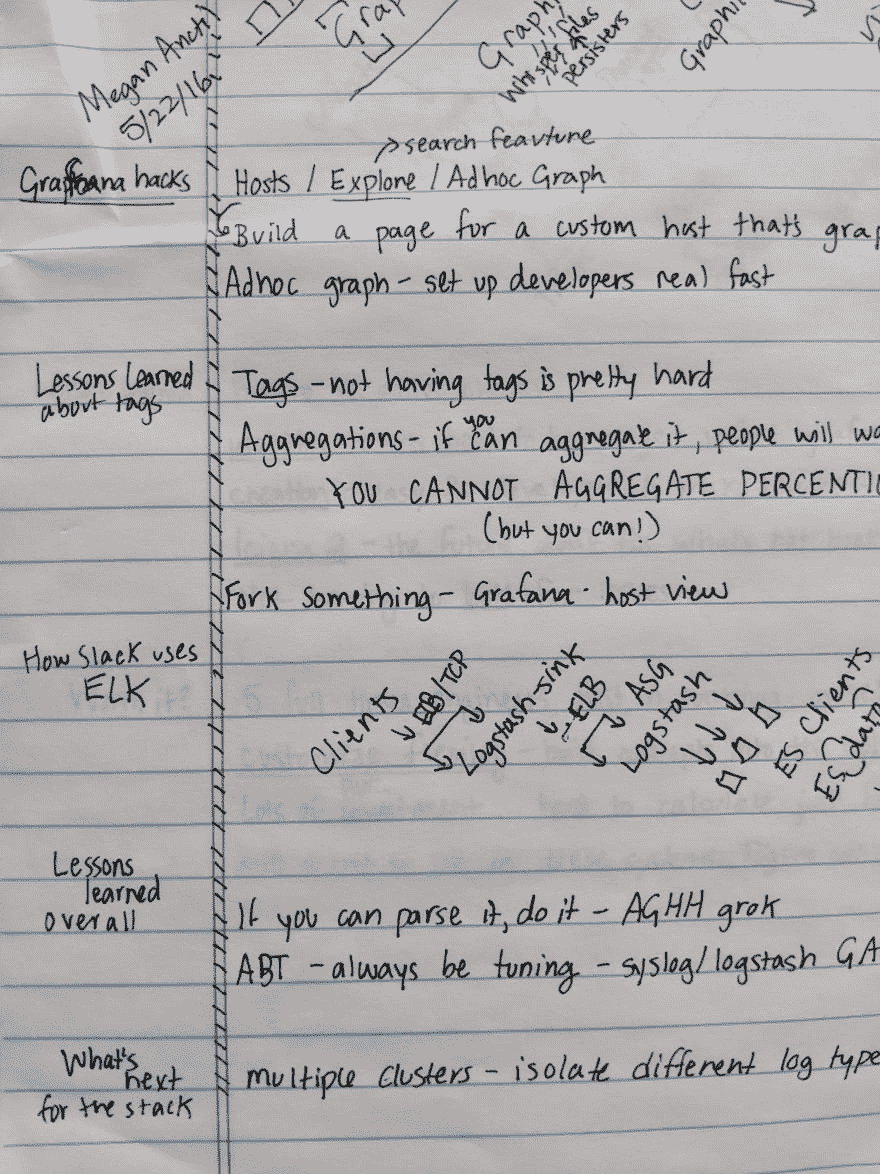 Megan Anctil
5/22/16
Grap
Graph
Whisper files
persisters
Graphi
search feavture
Grafana hacks
Hosts / Explore / Adhoc Graph
Build a page for a custom host that's grap
Adhoc graph - set up developers real fast
Lessons learned
about tags
Tags - not having tags is pretty hard
Aggregations - if you can aggregate it, people will wa
YOU CANNOT AGGREGATE PERCENTI
(but you can!)
Fork something - Grafana - host view
How Slack uses
ELK
Clients
ELB/TCP
Logstash-sink
ELB
ASG
Logstash
ES Clients
ES data
Lessons
learned
overall
If you can parse it, do it - AGHH grok
ABT - always be tuning - syslog/logstash GA
What's
next
for the stack
multiple clusters - isolate different log type